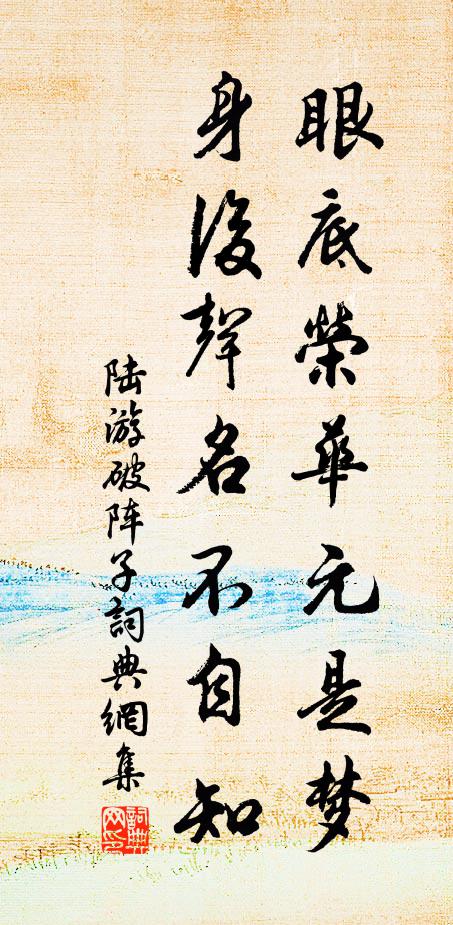 眼底榮華元是梦
身後聲名不自知
陆游破阵子詞典網集